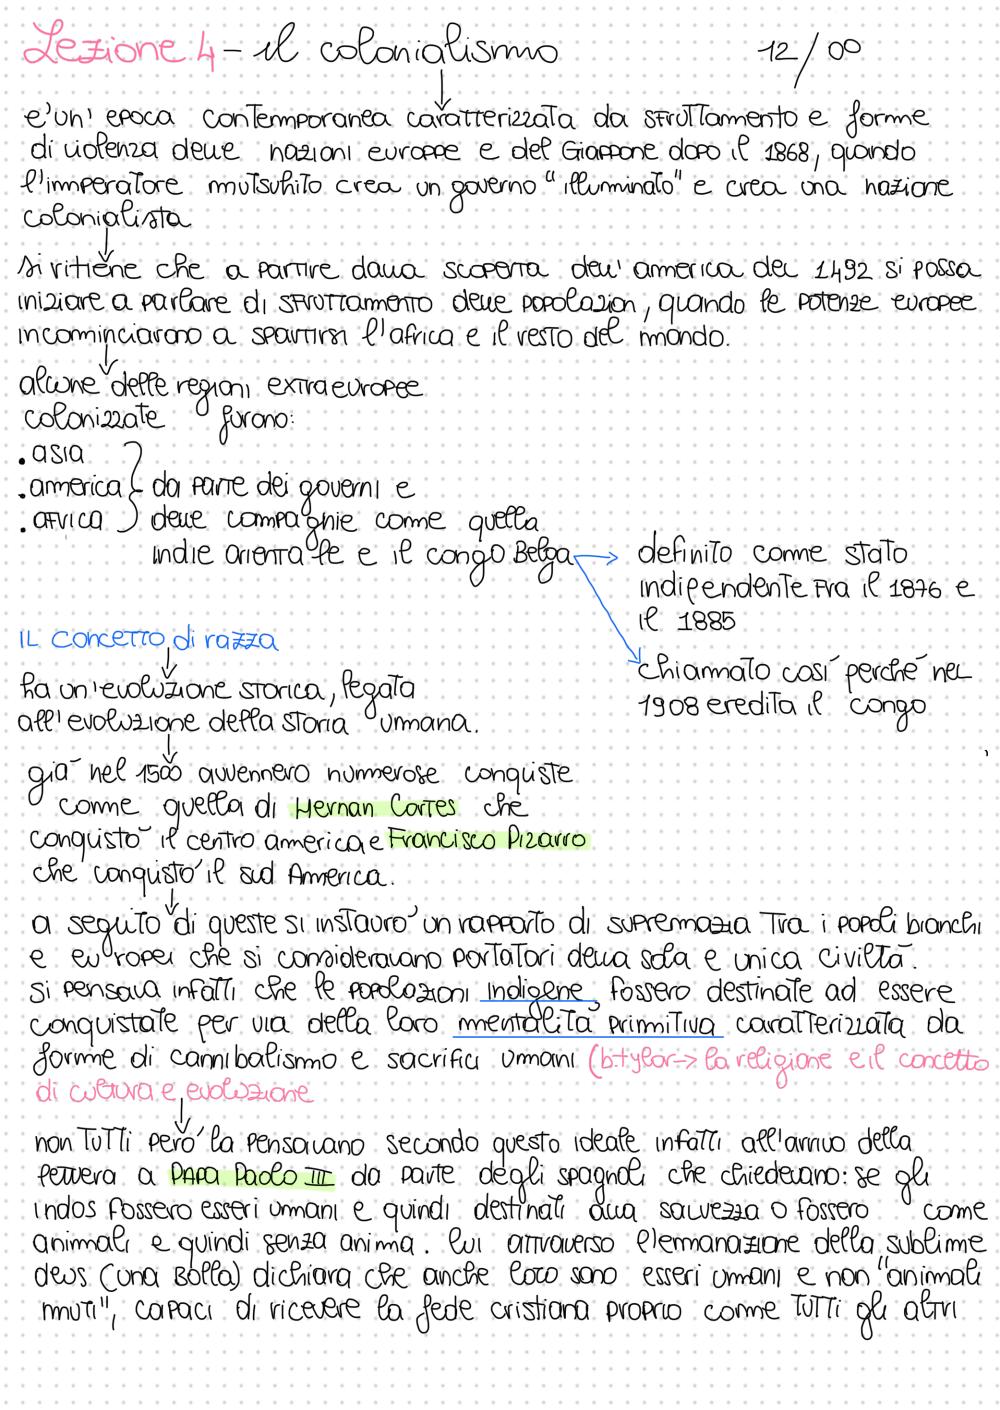 Lezione 4 - il colonialismo 12/00
e' un' epoca contemporanea caratterizzata da sfruttamento e forme
di violenza delle nazioni europee e del Giappone dopo il 1868, quando
l'imperatore mutsuhito crea un governo "illuminato" e crea una nazione
colonialista
si ritiene che a partire dalla scoperta dell' america del 1492 si possa
iniziare a parlare di sfruttamento delle popolazion, quando le potenze europee
incominciarono a spartirsi l'africa e il resto del mondo.
alcune delle regioni extraeuropee
colonizzate furono:
.asia
.america } da parte dei governi e
.africa delle compagnie come quella
indie orientale e il congo Belga → definito come stato
indipendente fra il 1876 e
il 1885
IL concetto di razza
chiamato così perché nel
1908 eredita il congo
ha un'evoluzione storica, legata
all'evoluzione della storia umana.
già nel 1500 avvennero numerose conquiste
come quella di Hernan Cortes che
conquistò il centro america e Francisco Pizarro
che conquistò il sud America.
a seguito di queste si instaurò un rapporto di supremazia tra i popoli bianchi
e europei che si consideravano portatori della sola e unica civiltà.
si pensava infatti che le popolazioni indigene, fossero destinate ad essere
conquistate per via della loro mentalità primitiva caratterizzata da
forme di cannibalismo e sacrifici umani (b.tylor-> la religione e il concetto
di cultura e evoluzione
non tutti però la pensavano secondo questo ideale infatti all'arrivo della
lettera a PAPA Paolo III da parte degli spagnoli che chiedevano: se gli
indos fossero esseri umani e quindi destinati alla salvezza o fossero come
animali e quindi senza anima. lui attraverso l'emanazione della sublime
deus (una Bolla) dichiara che anche loro sono esseri umani e non "animali
muti", capaci di ricevere la fede cristiana proprio come tutti gli altri